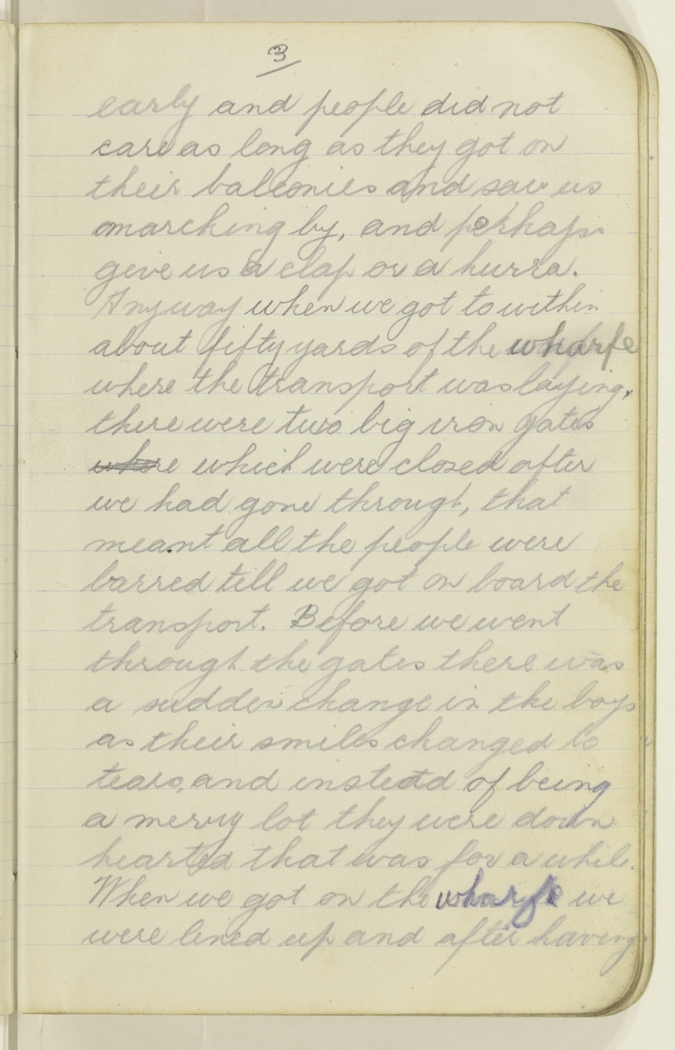 3
early and people did not
care as long as they got on
their balconies and saw us
marching by, and perhaps
give us a clap or a hurra.
Anyway when we got to within
about fifty yards of the wharfe
where the transport was laying,
there were two big iron gates
where which were closed after
we had gone through, that
meant all the people were
barred till we got on board the
transport. Before we went
through the gates there was
a sudden change in the boys
as their smiles changed to
tears, and instead of being
a merry lot they were down
hearted that was for a while.
When we got on the wharfe we
were lined up and after having